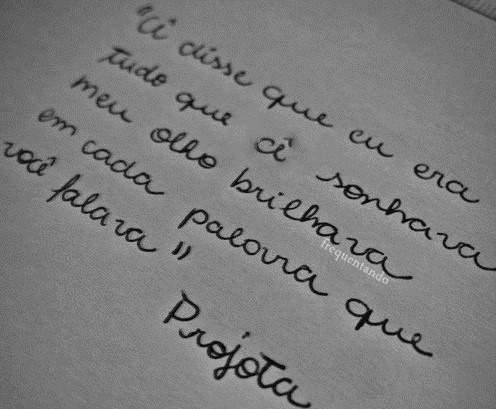 "Cê disse que eu era
tudo que cê sonhava
meu olho brilhava
em cada palavra que
você falava"
frequentando
Projota